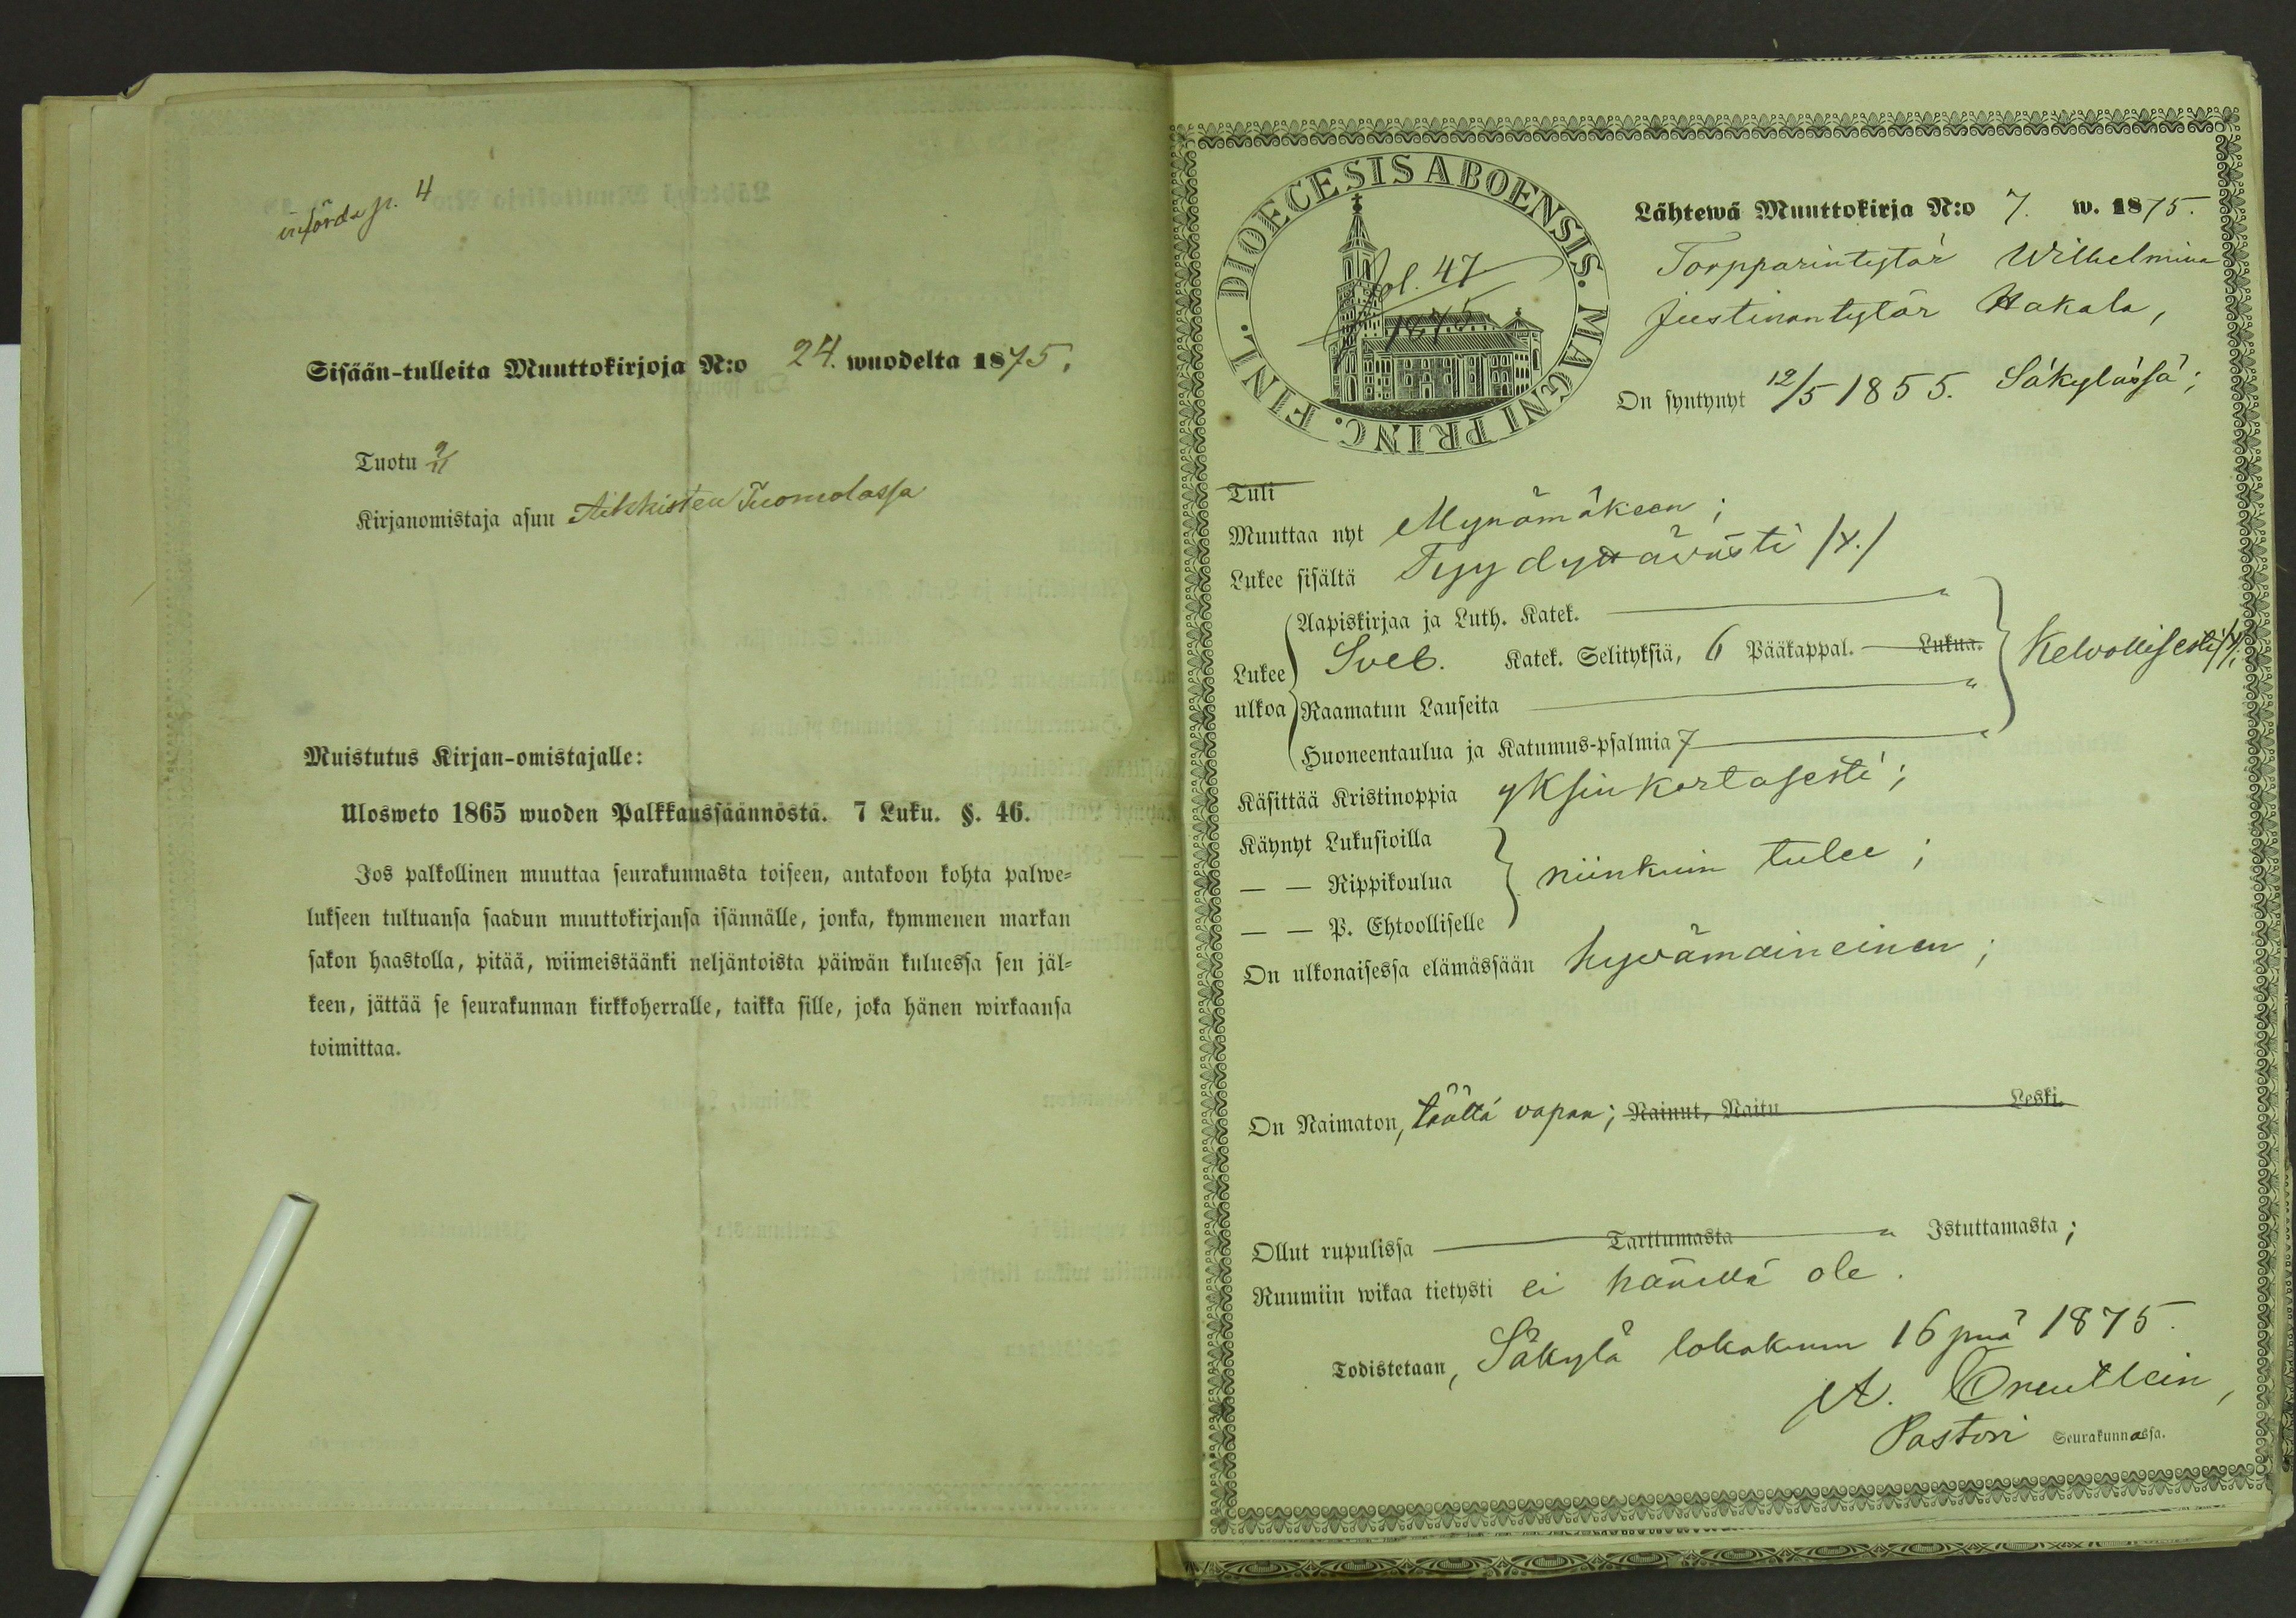 införd p. 4
Sisään-tulleita Muuttokirjoja N:o 24. wuodelta 1875.
Tuotu 2/11
Kirjanomistaja asuu Tuomolassa
Muistutus Kirjan-omistajalle:
Ulosweto 1865 wuoden Palkkaussäännöstä. 7 Luku. §. 46.
Jos palkollinen muuttaa seurakunnasta toiseen, antakoon kohta palwe-
lukseen tultuansa saadun muuttokirjansa isännälle, jonka, kymmenen markan
sakon haastolla, pitää, wiimeistäänki neljäntoista päiwän kuluessa sen jäl-
keen, jättää se seurakunnan kirkkoherralle, taikka sille, joka hänen wirkaansa
toimittaa.
FINL. DIOECESIS ABOENSIS. MAGNI PRINC.
fol. 47
1875
Lähtewä Muuttokirja N:o 7. w. 1875.
Torpparintytär Wilhelmina
Justinantytär Hakala,
On syntynyt 12/5 1855. Säkylässä;
Tuli
Muuttaa nyt Mynämäkeen;
Lukee sisältä Tyydyttävästi /x./
Aapiskirjaa ja Luth. Katek. "
Lukee ulkoa Sveb. Katek. Selityksiä, 6 Pääkappal. Lukua. Kelvollisesti /x/;
Raamatun Lauseita "
Huoneentaulua ja Katumus-psalmia 7 "
Käsittää Kristinoppia yksinkertasesti;
Käynyt Lukusioilla
— — Rippikoulua niinkuin tulee;
— — P. Ehtoolliselle
On ulkonaisessa elämässään hyvämaineinen;
On Naimaton, täältä vapaa; Nainut, Naitu Leski.
Ollut rupulissa Tarttumasta " Istuttamasta;
Ruumiin wikaa tietysti ei hänellä ole.
Todistetaan, Säkylä lokakuun 16 pnä 1875.
Pastori Seurakunnassa.